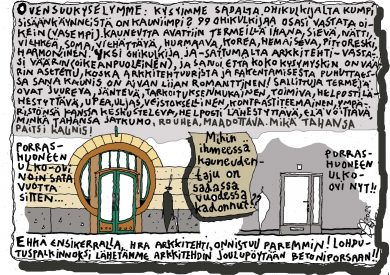 OVENSUUKYSELYMME: KYSYIMME SADALTA OHIKULKIJALTA KUMPI
SISÄÄNKÄYNNEISTÄ ON KAUNIIMPI? 99 OHIKULKIJAA OSASI VASTATA OI-
KEIN (VASEMPI). KAUNEUTTA AVATTIIN TERMEILLÄ IHANA, SIEVÄ, NÄTTI,
VIEHKEÄ, SOMA, VIEHÄTTÄVÄ, HURMAAVA, KOREA, HEMAISEVA, PITORESKI,
HARMONINEN. YKSI OHIKULKIJA (JA SATTUMALTA ARKKITEHTI) VASTA-
SI VÄÄRIN (OIKEANPUOLEINEN), JA SANOI ETTÄ KOKO KYSYMYSKIN ON VÄÄ-
RIN ASETETTU, KOSKA ARKKITEHTUURISTA JA RAKENTAMISESTA PUHUTTAES-
SA SANA KAUNIS ON AIVAN LIIAN ROMANTTINEN! SALLITTUJA TERMEJÄ
OVAT JUUREVA, JÄNTEVÄ, TARKOITUKSENMUKAINEN, TOIMIVA, HELPOSTI LÄ-
HESTYTTÄVÄ, UPEA, ULJAS, VEISTOKSELLINEN, KONTRASTITEEMAINEN, YMPÄ-
RISTÖNSÄ KANSSA KESKUSTELEVA, HELPOSTI LÄHESTYTTÄVÄ, ELÄVÖITTÄVÄ,
MINKÄ TAHANSA JATKUMO, ROUHEA, RAADOTTAVA, MIKÄ TAHANSA
PAITSI KAUNIS!
PORRAS-
HUONEEN
ULKO-OVI
NOIN SATA
VUOTTA
SITTEN...
Mihin
ihmeessä
kauneuden-
taju on
sadassa
vuodessa
kadonnut??
PORRAS-
HUONEEN
ULKO-
OVI NYT!!
EHKÄ ENSIKERRALLA, HRA ARKKITEHTI, ONNISTUU PAREMMIN! LOHDU-
TUSPALKINNOKSI LÄHETÄMME ARKKITEHDIN JOULUPÖYTÄÄN BETONIPORSAAN!!!